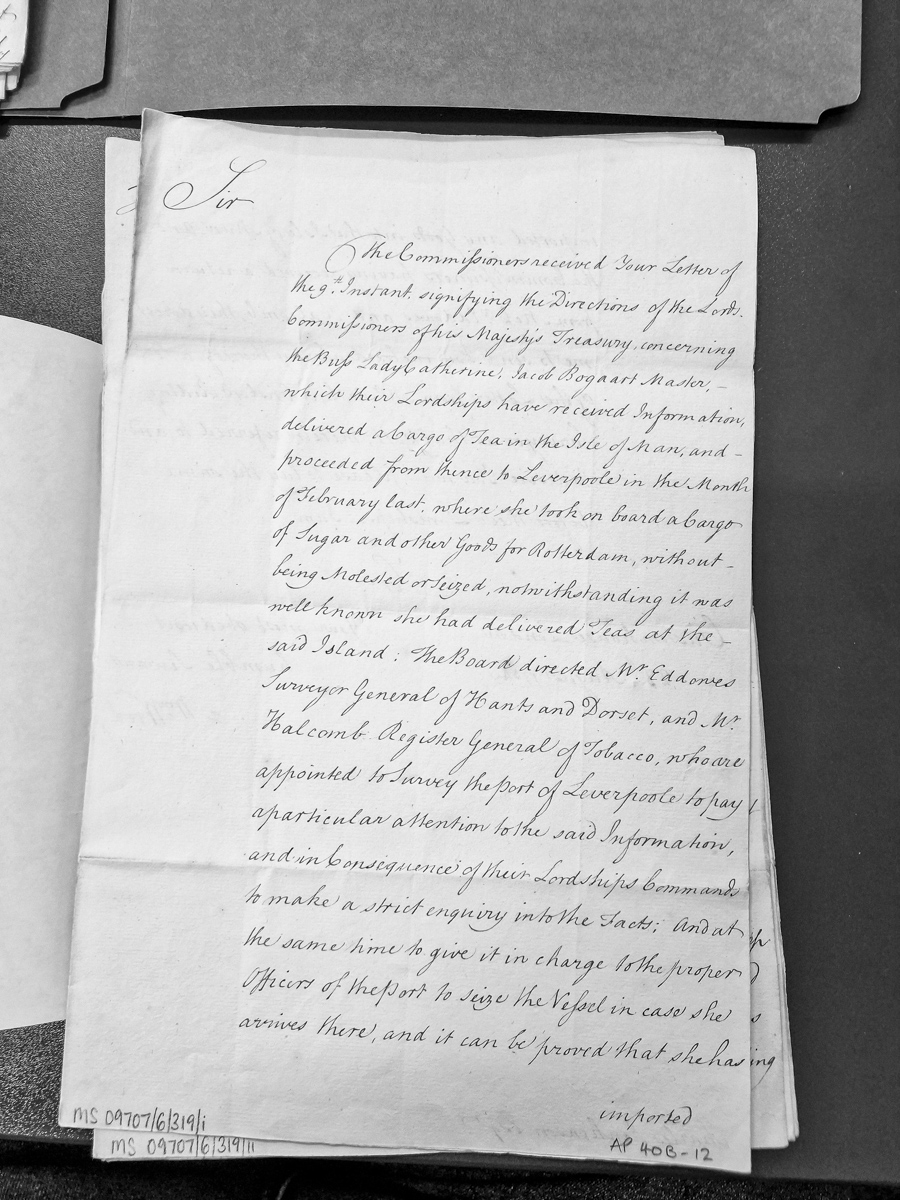 Sir
The Commissioners received Your Letter of
the 9th Instant, signifying the Directions of the Lords
Commissioners of his Majesty's Treasury, concerning
the Buss Lady Catherine, Jacob Bogaart Master, –
which their Lordships have received Information,
delivered a Cargo of Tea in the Isle of Man, and –
proceeded from thence to Leverpoole in the Month
of February last, where she took on board a Cargo
of Sugar and other Goods for Rotterdam, without –
being Molested or Seized, notwithstanding it was
well known she had delivered Teas at the –
said Island; The Board directed Mr. Eddowes
Surveyor General of Hants and Dorset, and Mr.
Halcomb Register General of Tobacco, who are
appointed to Survey the Port of Leverpoole to pay
a particular attention to the said Information,
and in Consequence of their Lordships Commands
to make a strict enquiry into the Facts; And at
the same time to give it in charge to the proper
Officers of the Port to seize the Vessel in case she
arrives there, and it can be proved that she has
imported
MS 09707/6/319/i
MS 09707/6/319/ii
AP 40B-12